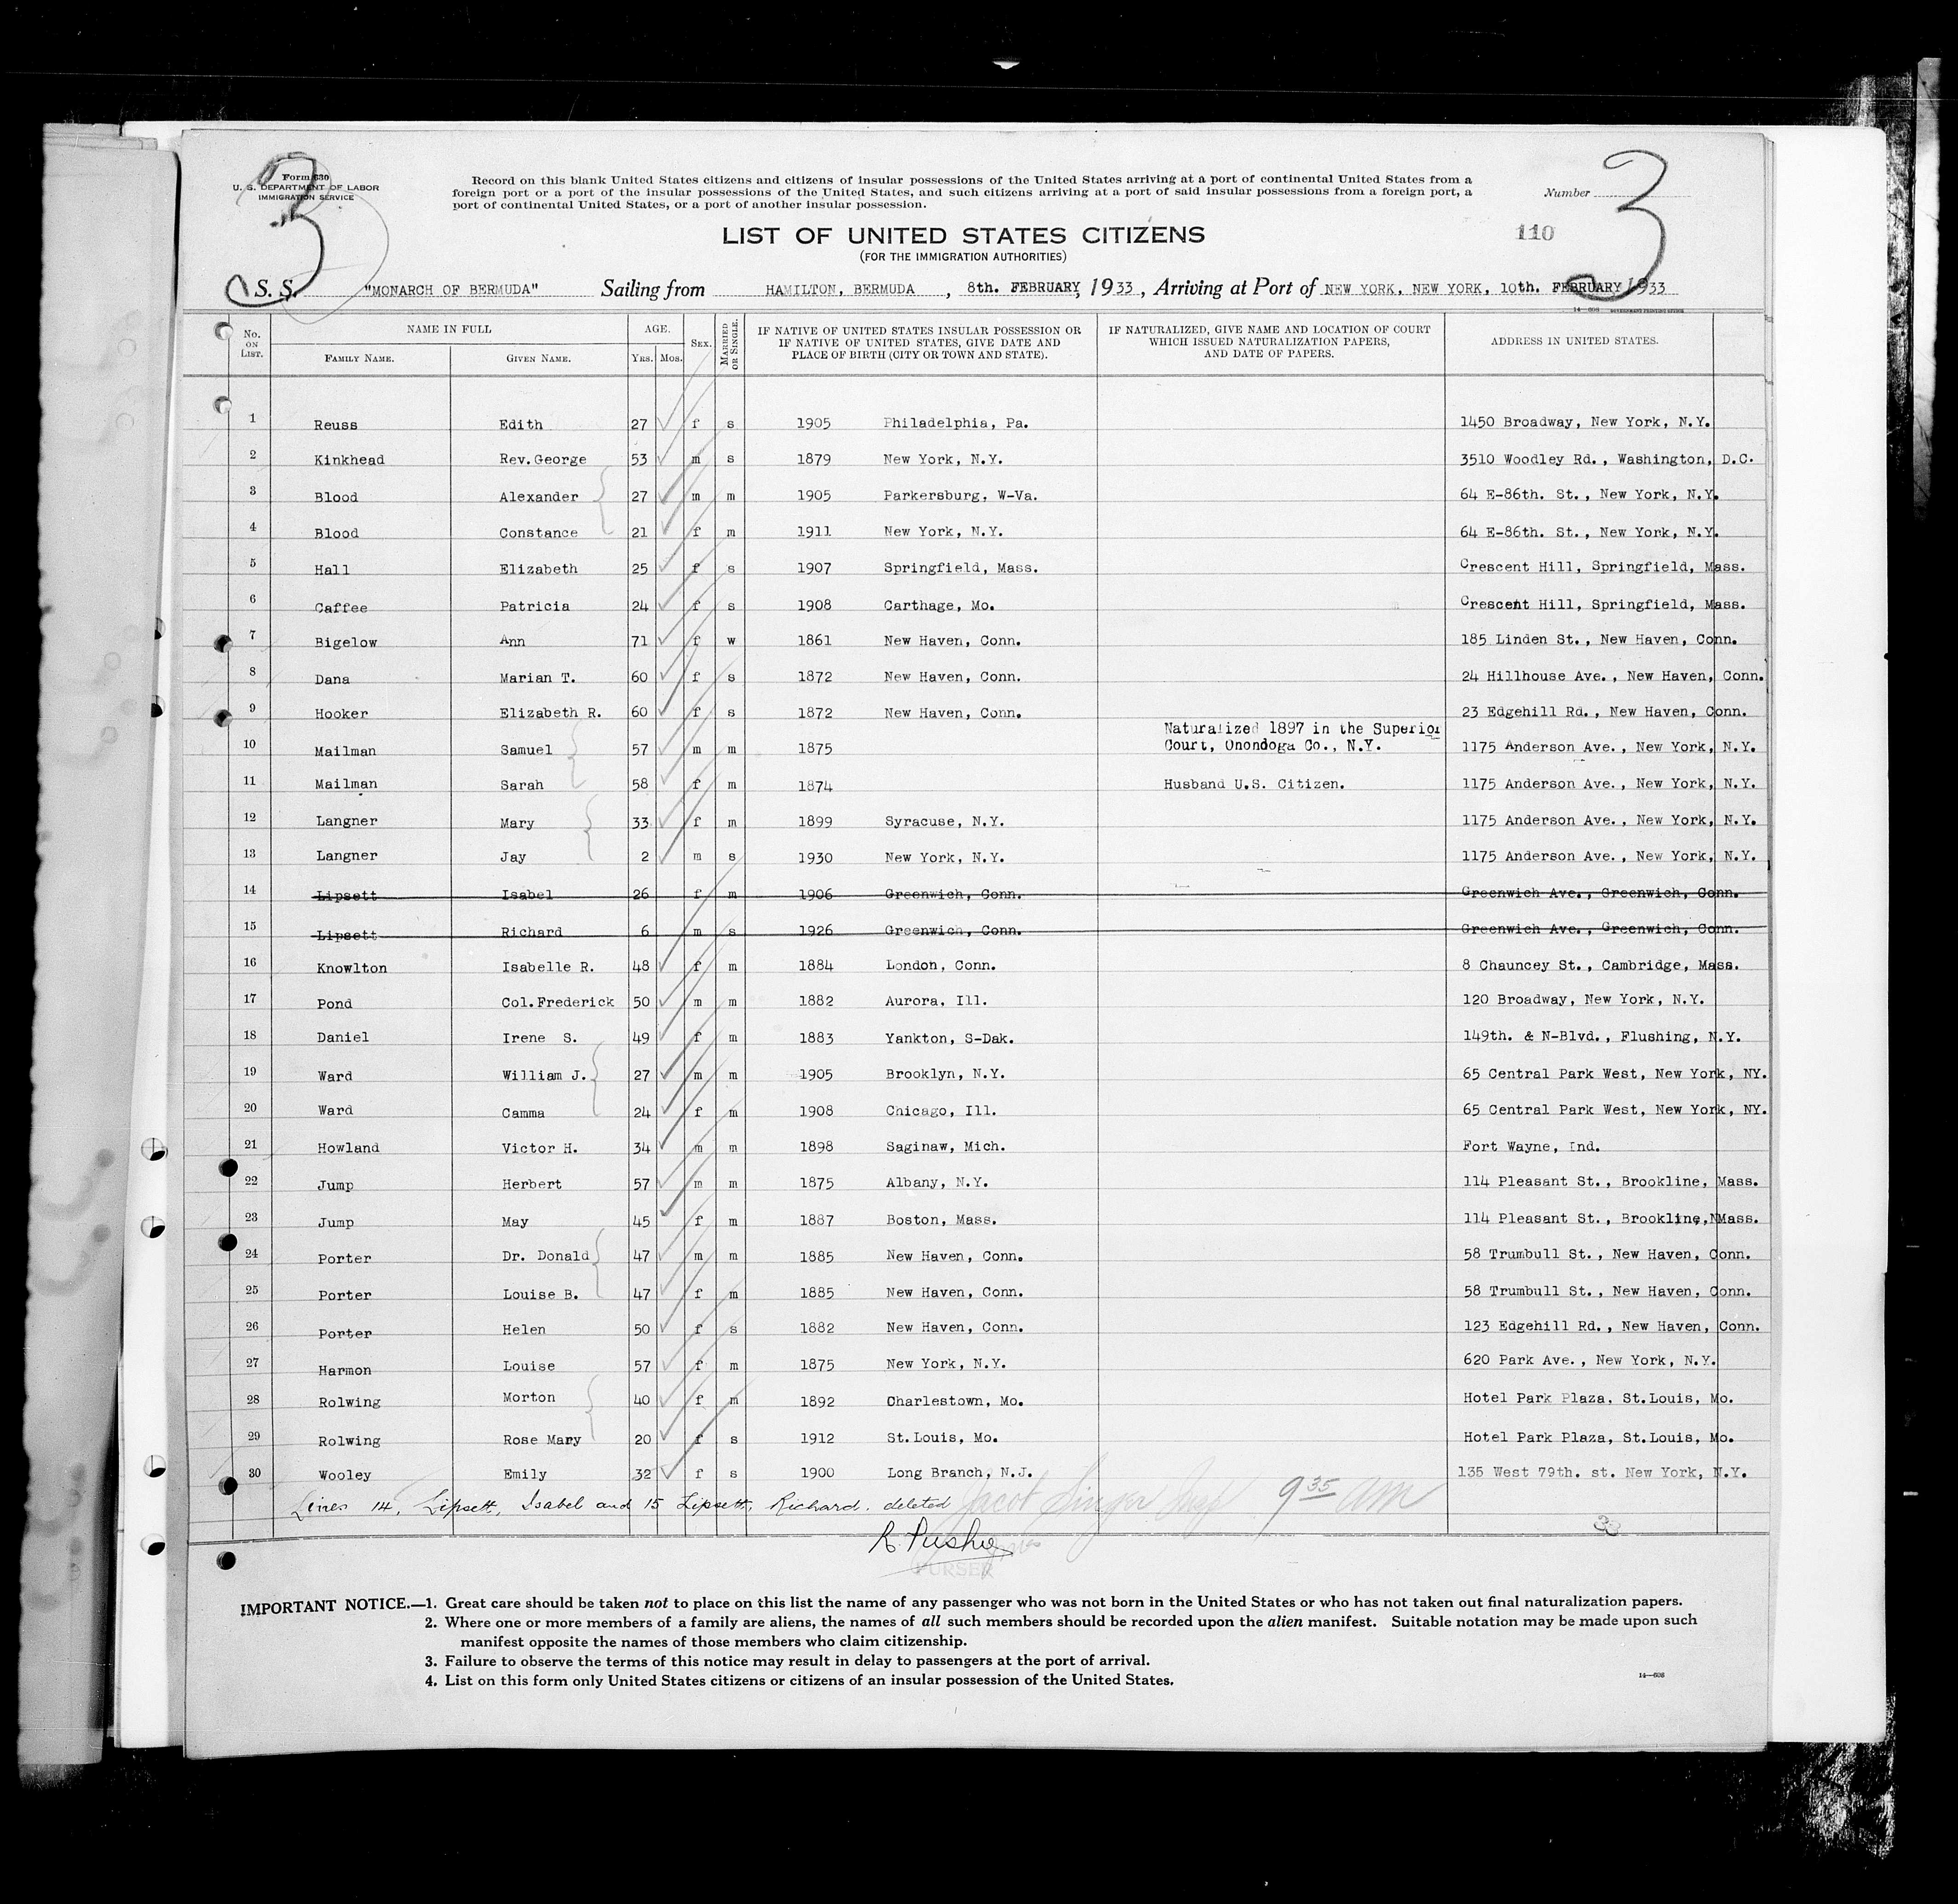 Form 630
U. S. DEPARTMENT OF LABOR
IMMIGRATION SERVICE
3
Record on this blank United States citizens and citizens of insular possessions of the United States arriving at a port of continental United States from a
foreign port or a port of the insular possessions of the United States, and such citizens arriving at a port of said insular possessions from a foreign port, a
port of continental United States, or a port of another insular possession.
Number
3
110
LIST OF UNITED STATES CITIZENS
(FOR THE IMMIGRATION AUTHORITIES)
S. S. "MONARCH OF BERMUDA" Sailing from HAMILTON, BERMUDA, 8th. FEBRUARY, 1933, Arriving at Port of NEW YORK, NEW YORK, 10th. FEBRUARY 1933
14—608 GOVERNMENT PRINTING OFFICE
No. ON LIST. NAME IN FULL FAMILY NAME. GIVEN NAME. AGE. YRS. MOS. SEX. MARRIED OR SINGLE. IF NATIVE OF UNITED STATES INSULAR POSSESSION OR IF NATIVE OF UNITED STATES, GIVE DATE AND PLACE OF BIRTH (CITY OR TOWN AND STATE). IF NATURALIZED, GIVE NAME AND LOCATION OF COURT WHICH ISSUED NATURALIZATION PAPERS, AND DATE OF PAPERS. ADDRESS IN UNITED STATES.
1 Reuss Edith 27 f s 1905 Philadelphia, Pa. 1450 Broadway, New York, N.Y.
2 Kinkhead Rev.George 53 m s 1879 New York, N.Y. 3510 Woodley Rd., Washington, D.C.
3 Blood Alexander 27 m m 1905 Parkersburg, W-Va. 64 E-86th. St., New York, N.Y.
4 Blood Constance 21 f m 1911 New York, N.Y. 64 E-86th. St., New York, N.Y.
5 Hall Elizabeth 25 f s 1907 Springfield, Mass. Crescent Hill, Springfield, Mass.
6 Caffee Patricia 24 f s 1908 Carthage, Mo. Crescent Hill, Springfield, Mass.
7 Bigelow Ann 71 f w 1861 New Haven, Conn. 185 Linden St., New Haven, Conn.
8 Dana Marian T. 60 f s 1872 New Haven, Conn. 24 Hillhouse Ave., New Haven, Conn.
9 Hooker Elizabeth R. 60 f s 1872 New Haven, Conn. 23 Edgehill Rd., New Haven, Conn.
10 Mailman Samuel 57 m m 1875 Naturalized 1897 in the Superior Court, Onondoga Co., N.Y. 1175 Anderson Ave., New York, N.Y.
11 Mailman Sarah 58 f m 1874 Husband U.S. Citizen. 1175 Anderson Ave., New York, N.Y.
12 Langner Mary 33 f m 1899 Syracuse, N.Y. 1175 Anderson Ave., New York, N.Y.
13 Langner Jay 2 m s 1930 New York, N.Y. 1175 Anderson Ave., New York, N.Y.
14 Lipsett Isabel 26 f m 1906 Greenwich, Conn. Greenwich Ave., Greenwich, Conn.
15 Lipsett Richard 6 m s 1926 Greenwich, Conn. Greenwich Ave., Greenwich, Conn.
16 Knowlton Isabelle R. 48 f m 1884 London, Conn. 8 Chauncey St., Cambridge, Mass.
17 Pond Col.Frederick 50 m m 1882 Aurora, Ill. 120 Broadway, New York, N.Y.
18 Daniel Irene S. 49 f m 1883 Yankton, S-Dak. 149th. & N-Blvd., Flushing, N.Y.
19 Ward William J. 27 m m 1905 Brooklyn, N.Y. 65 Central Park West, New York, NY.
20 Ward Camma 24 f m 1908 Chicago, Ill. 65 Central Park West, New York, NY.
21 Howland Victor H. 34 m m 1898 Saginaw, Mich. Fort Wayne, Ind.
22 Jump Herbert 57 m m 1875 Albany, N.Y. 114 Pleasant St., Brookline, Mass.
23 Jump May 45 f m 1887 Boston, Mass. 114 Pleasant St., Brookline, Mass.
24 Porter Dr. Donald 47 m m 1885 New Haven, Conn. 58 Trumbull St., New Haven, Conn.
25 Porter Louise B. 47 f m 1885 New Haven, Conn. 58 Trumbull St., New Haven, Conn.
26 Porter Helen 50 f s 1882 New Haven, Conn. 123 Edgehill Rd., New Haven, Conn.
27 Harmon Louise 57 f m 1875 New York, N.Y. 620 Park Ave., New York, N.Y.
28 Rolwing Morton 40 f m 1892 Charlestown, Mo. Hotel Park Plaza, St.Louis, Mo.
29 Rolwing Rose Mary 20 f s 1912 St.Louis, Mo. Hotel Park Plaza, St.Louis, Mo.
30 Wooley Emily 32 f s 1900 Long Branch, N.J. 135 West 79th. st. New York, N.Y.
Lines 14, Lipsett, Isabel and 15 Lipsett, Richard. deleted Jacot Singer Insp 9 35 AM
PURSER
IMPORTANT NOTICE.—1. Great care should be taken not to place on this list the name of any passenger who was not born in the United States or who has not taken out final naturalization papers.
2. Where one or more members of a family are aliens, the names of all such members should be recorded upon the alien manifest. Suitable notation may be made upon such
manifest opposite the names of those members who claim citizenship.
3. Failure to observe the terms of this notice may result in delay to passengers at the port of arrival.
4. List on this form only United States citizens or citizens of an insular possession of the United States.
14—608